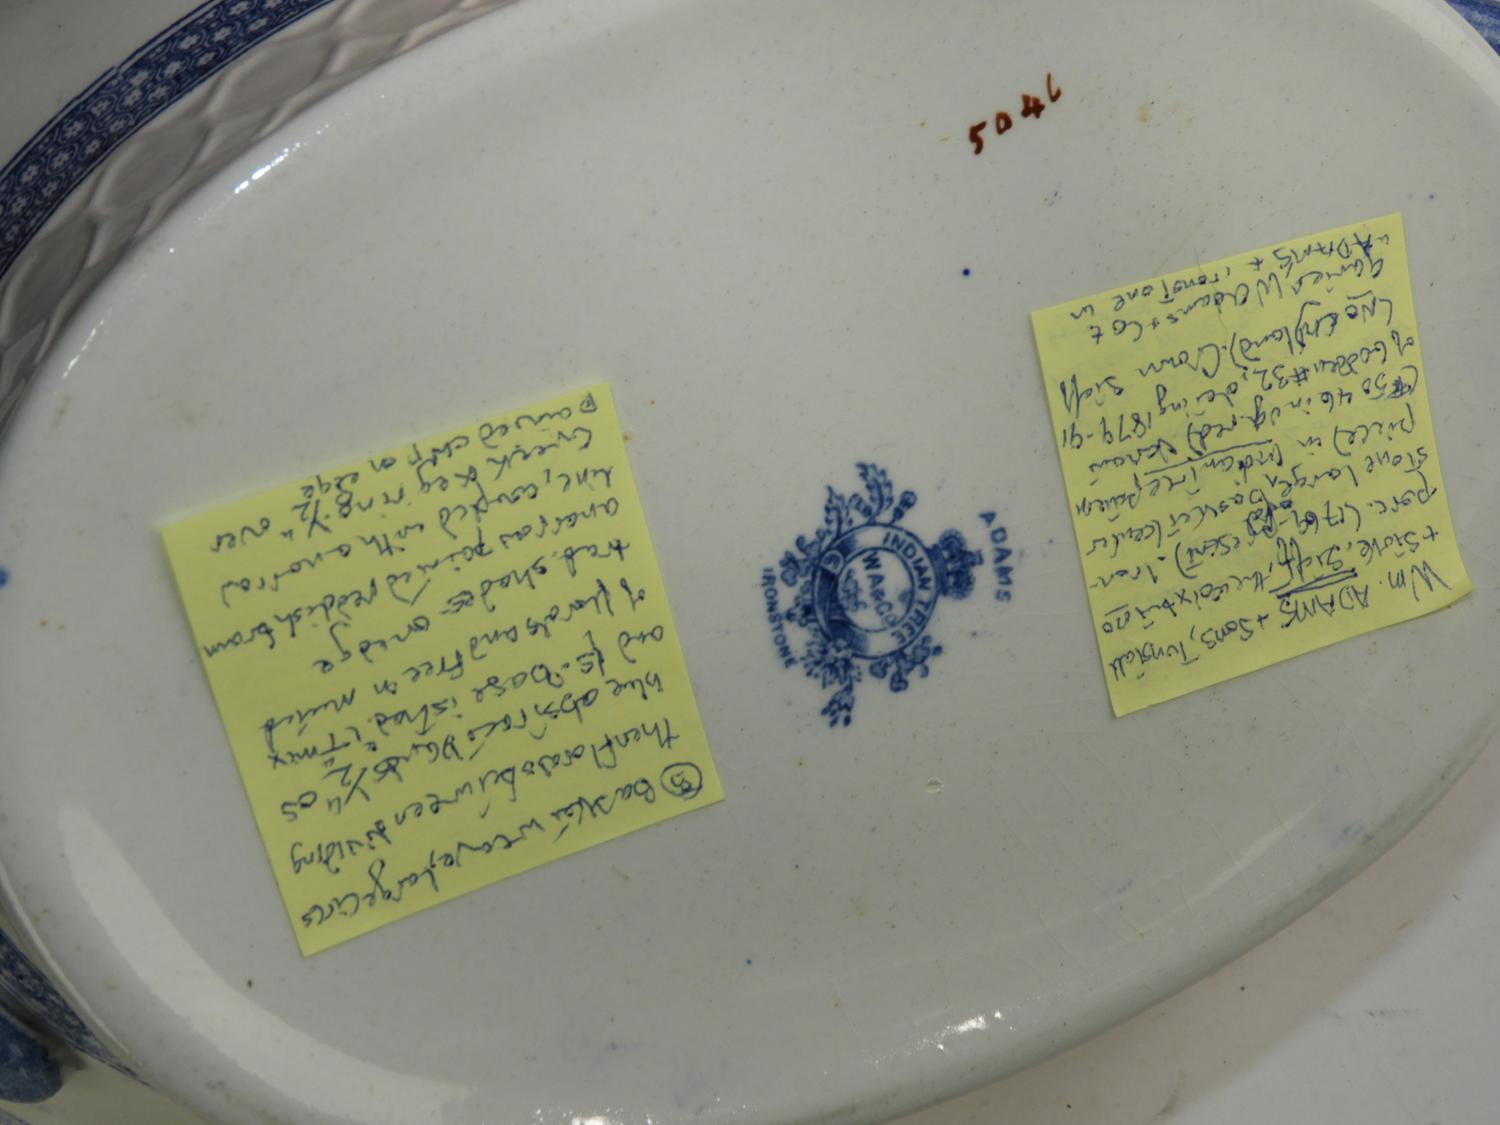 5046
ADAMS
INDIAN TREE
WA&CO
IRONSTONE
Wm. ADAMS + Sons, Tunstall
+ Stoke, Staff,
porc. (1769-present). Iron-
stone large basket center
piece) in Indian Tree pattern
(#5046 in red)
of Godden #32, dating 1879-91
(No England). Crown
garnish W Adams + Co
"ADAMS + ironstone in
③ Basket weave, large
then florals between dividing
blue abstract bands 1/2" as
and base is trad.
of florals and tree in muted
trad. shades - on edge
another painted reddish brown
line, coupled with another
Greek Key ring. 1/2" over
painted chip on edge